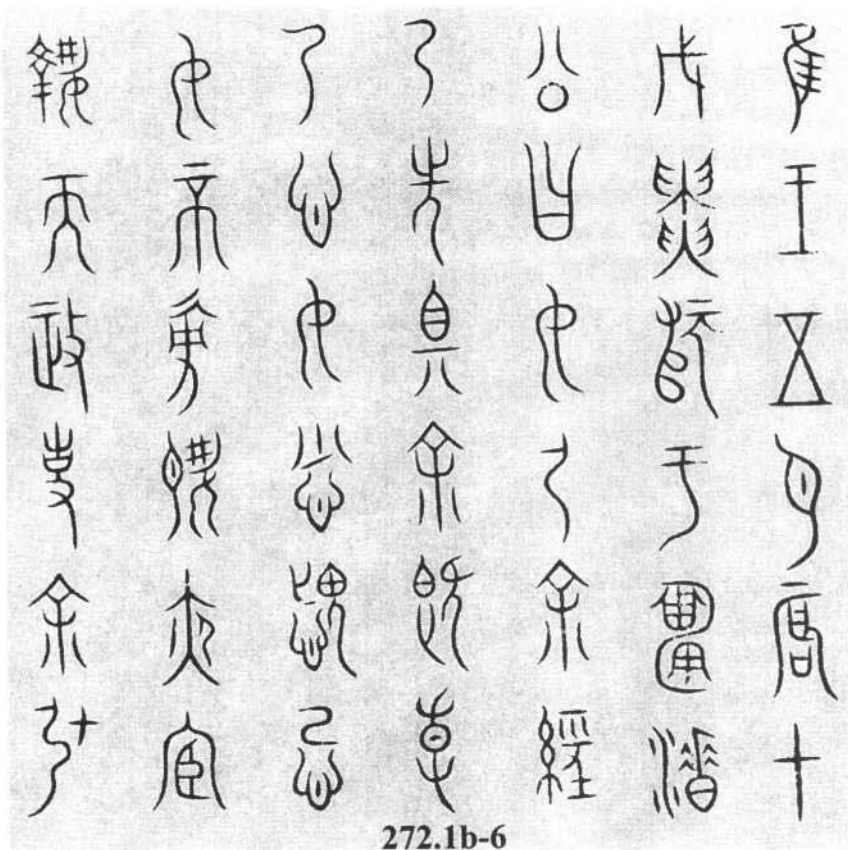 隹王五月辰才
戊寅師于淄涶
公曰女尸余經
乃先且余既尃
乃心女㣺愄忌
女不㒸夙夜宦
執而政事余弘
272.1b-6